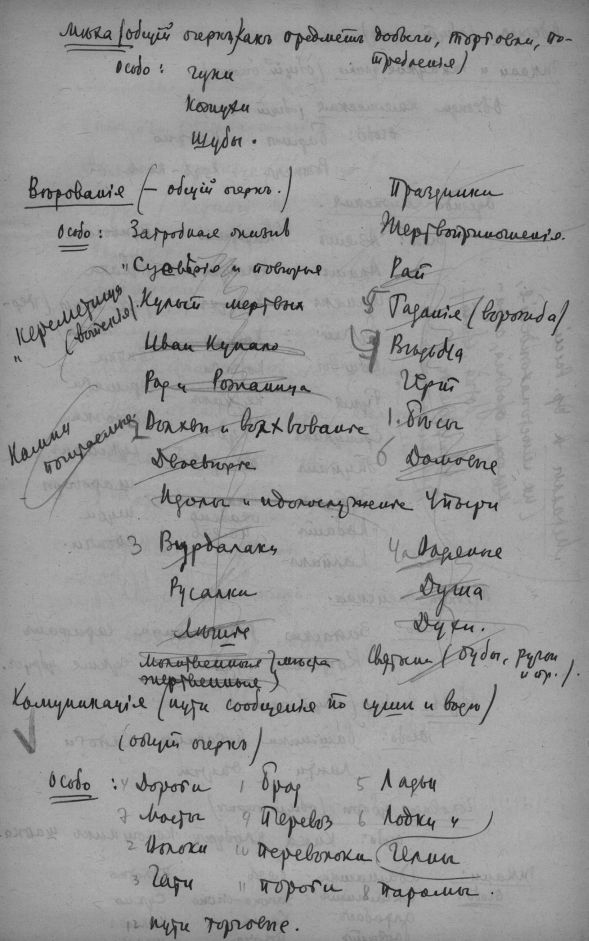 Мѣха (общій очеркъ какъ предметъ добычи, торговли, по-
требленія)
Особо: гуни
Кожухи
Шубы.
Вѣрованія (— общій очеркъ.) Праздники
Особо: Загробная жизнь Жертвоприношенія.
Суевѣрія и повѣрья Рай
Культъ мертвыхъ 5 Гаданія (ворожба)
Иванъ Купало Вѣдьма
Родъ и Рожаница Чертъ
2 Волхвы и волхвованіе 1. Бѣсы
Двоевѣріе 6 Домовые
Идолы и идолослуженіе Упыри
3 Вурдалаки 4 Водяные
Русалки Душа
Лѣшіе Духи.
Молитвенныя (мѣста Святыни (дубы,
жертвенныя) и пр.).
Коммуникація (пути сообщенія по сушѣ и водѣ)
(общій очеркъ)
Особо: 4 Дороги 1 Бродъ 5 Ладьи
7 Мосты 9 Перевозъ 6 Лодки и
2 Волоки 10 Переволоки Челны
3 Гати 11 Пороги 8 Паромы.
Пути торговые.